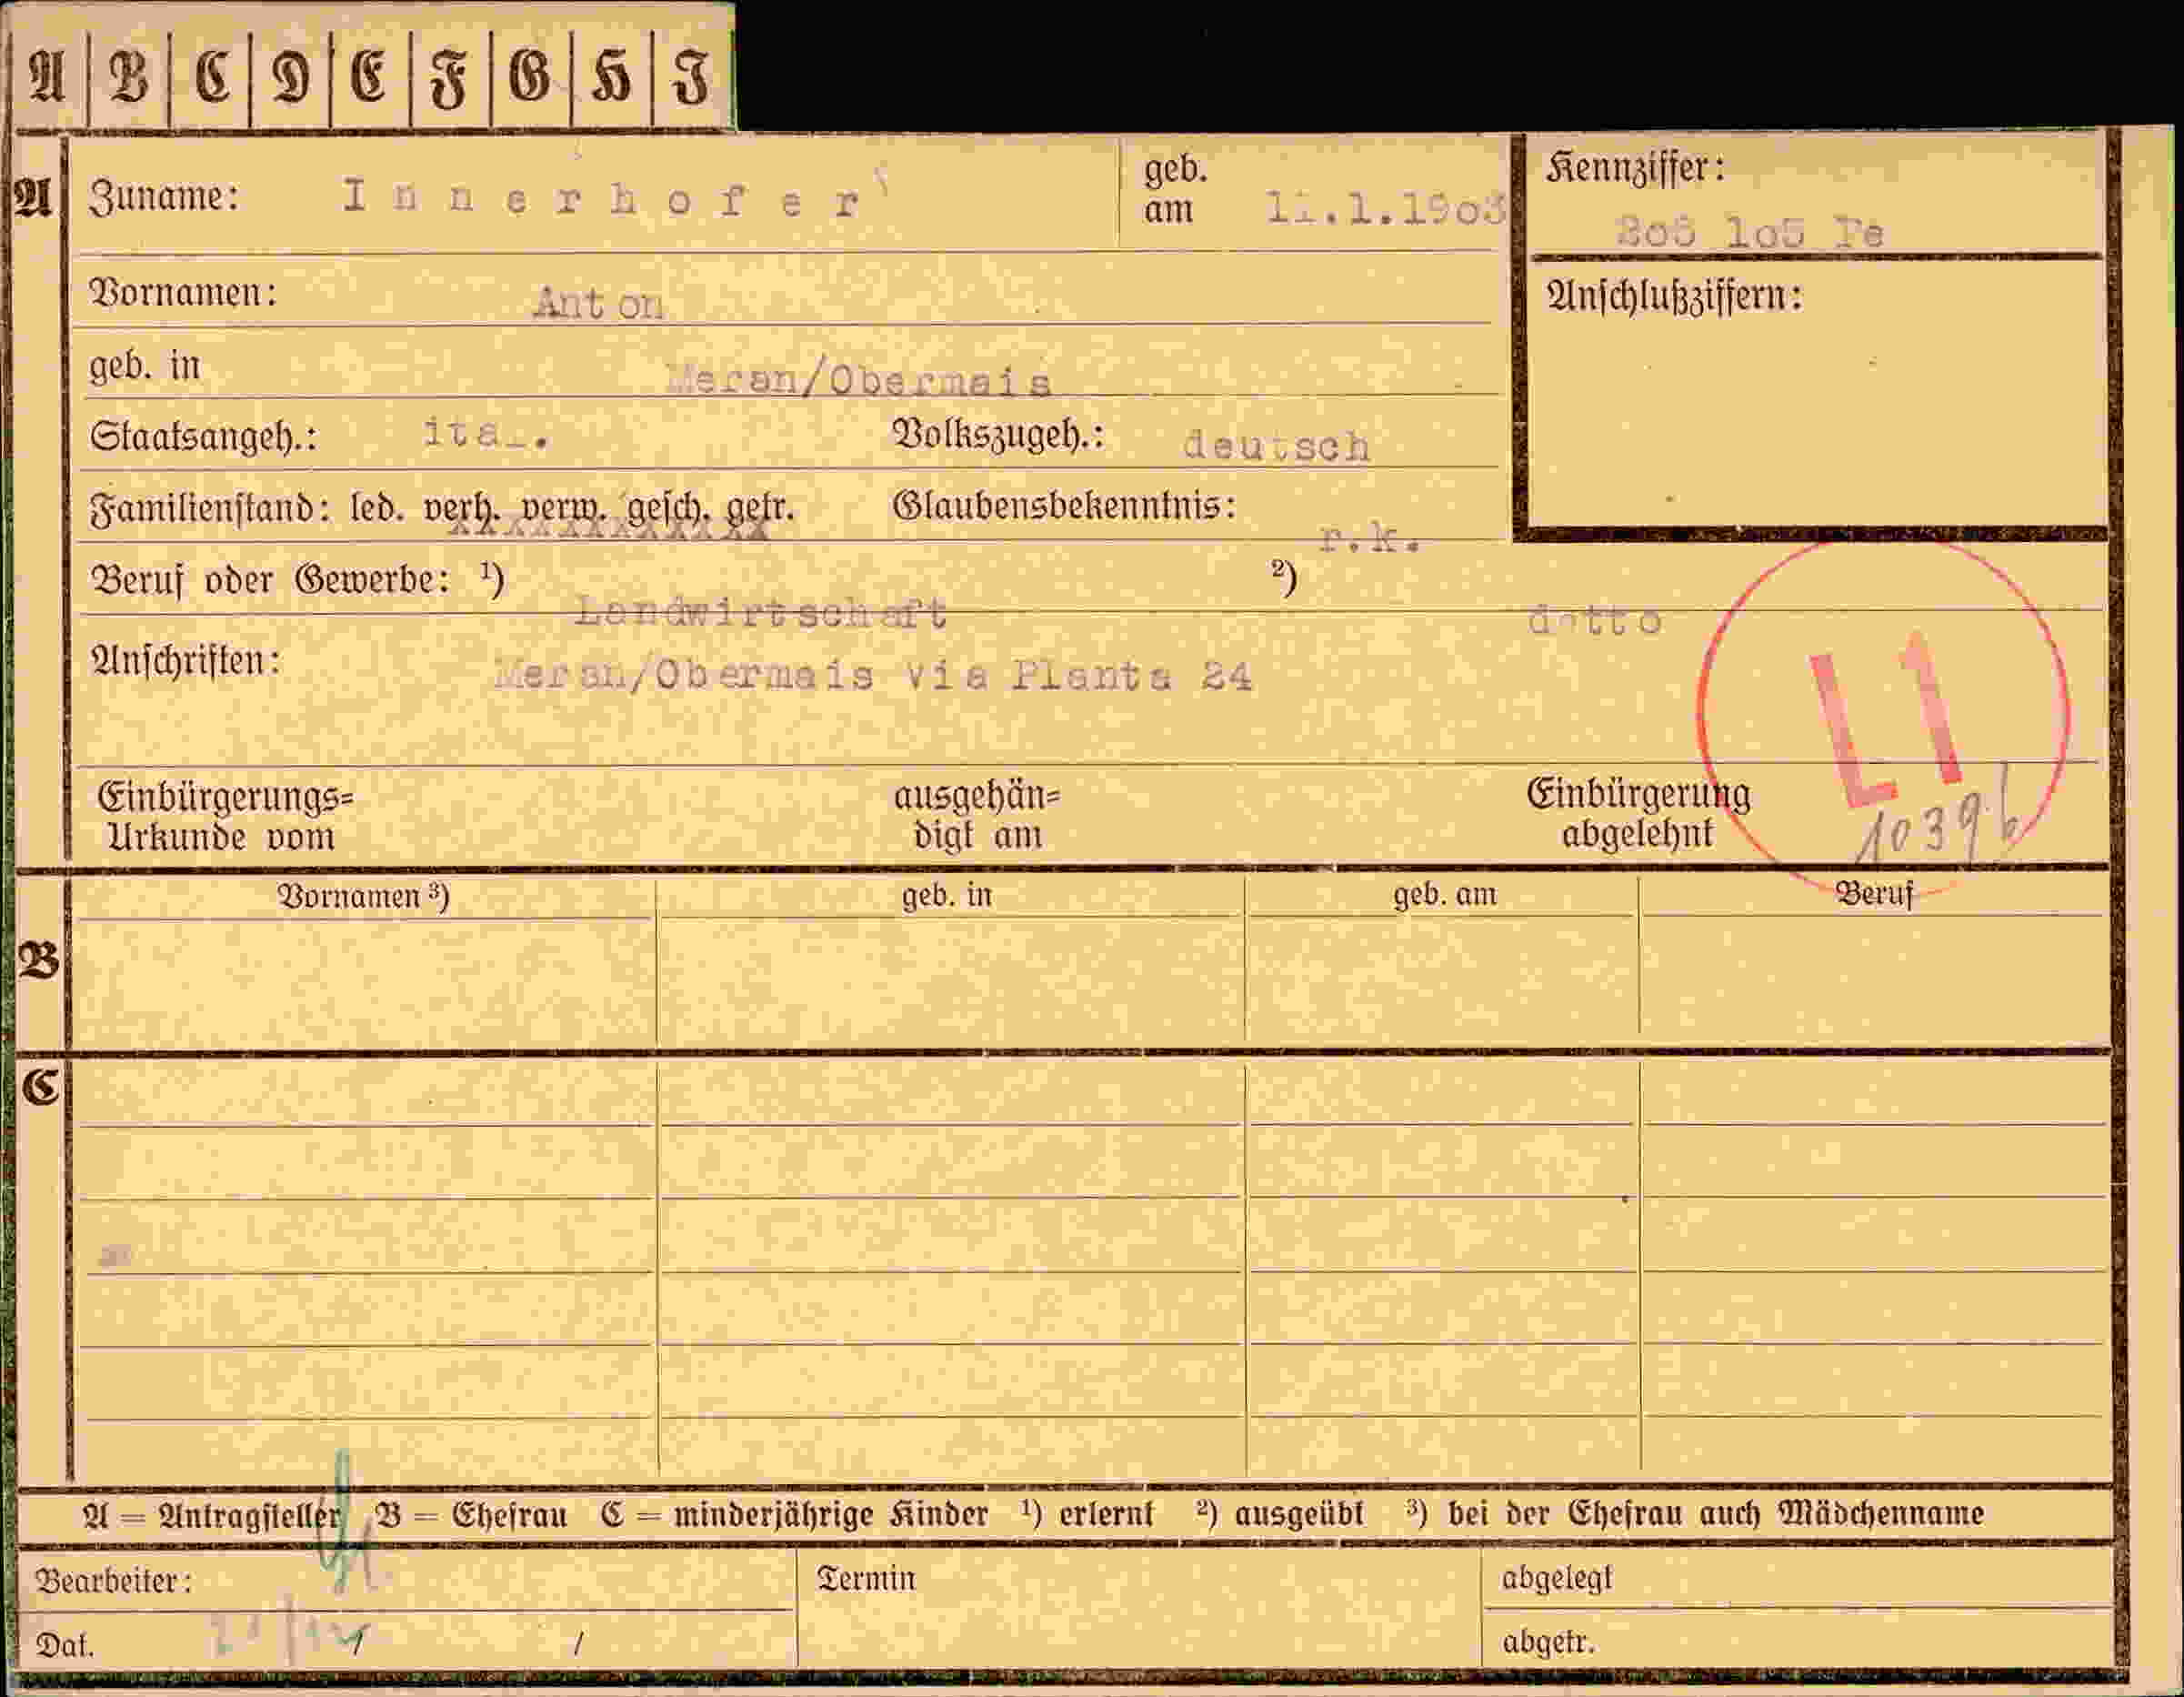 A B C D E F G H I
A Zuname: Innerhofer geb. am 11.1.1903
Kennziffer: 105 Pe
Vornamen: Anton
Anschlußziffern:
geb. in Meran/Obermais
Staatsangeh.: ital. Volkszugeh.: deutsch
Familienstand: led. verh. verw. gesch. getr. Glaubensbekenntnis: r.k.
Beruf oder Gewerbe: ¹) Landwirtschaft ²) detto
Anschriften: Meran/Obermais via Planta 24
L1
Einbürgerungs= ausgehän= Einbürgerung
Urkunde vom digt am abgelehnt
1039
Vornamen ³) geb. in geb. am Beruf
B
C
A = Antragsteller B = Ehefrau C = minderjährige Kinder ¹) erlernt ²) ausgeübt ³) bei der Ehefrau auch Mädchenname
Bearbeiter: Termin abgelegt
Dat. / abgetr.